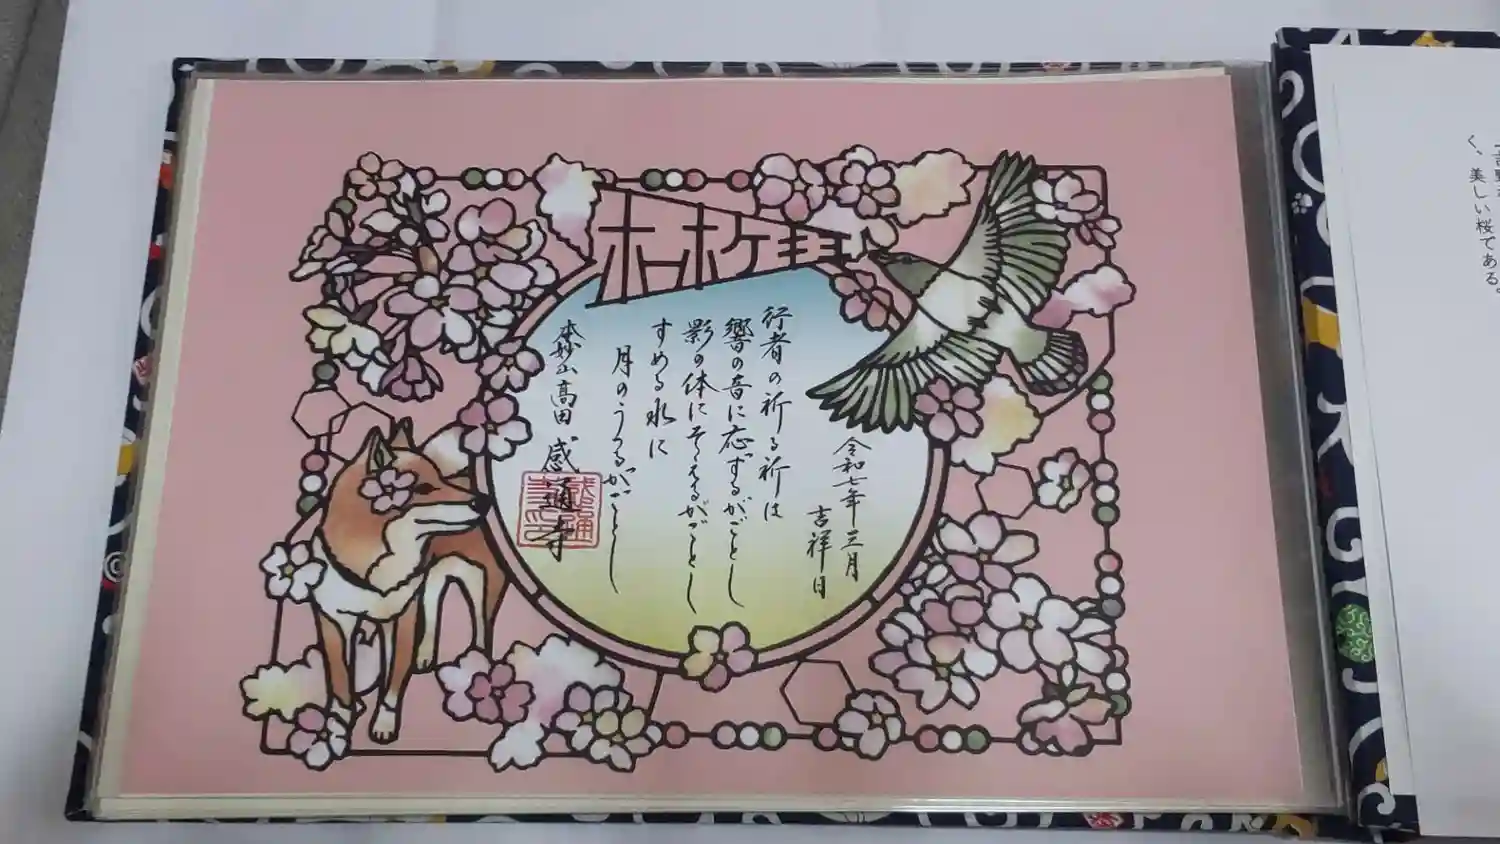 令和七年三月
吉祥日
行者の祈る祈は
響の音に応ずるがごとし
影の体にそえるがごとし
すめる水に
月のうつるがごとし
本妙山高田感通寺
く、美しい桜である。